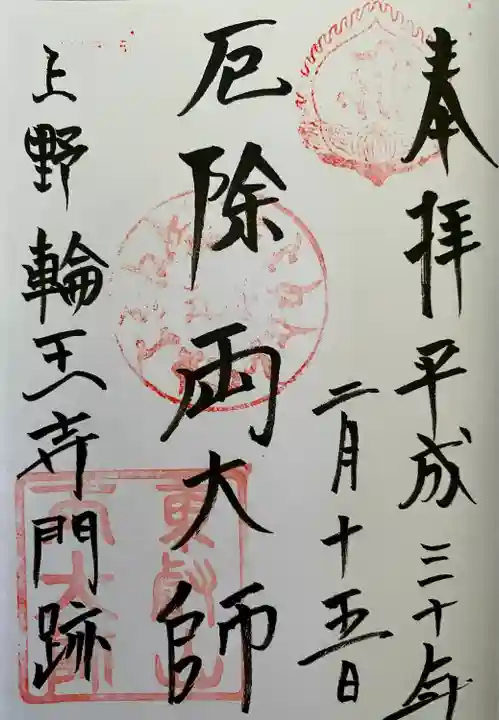 奉拝 平成三十年
二月十五日
厄除両大師
上野輪王寺門跡
東叡山
両大師